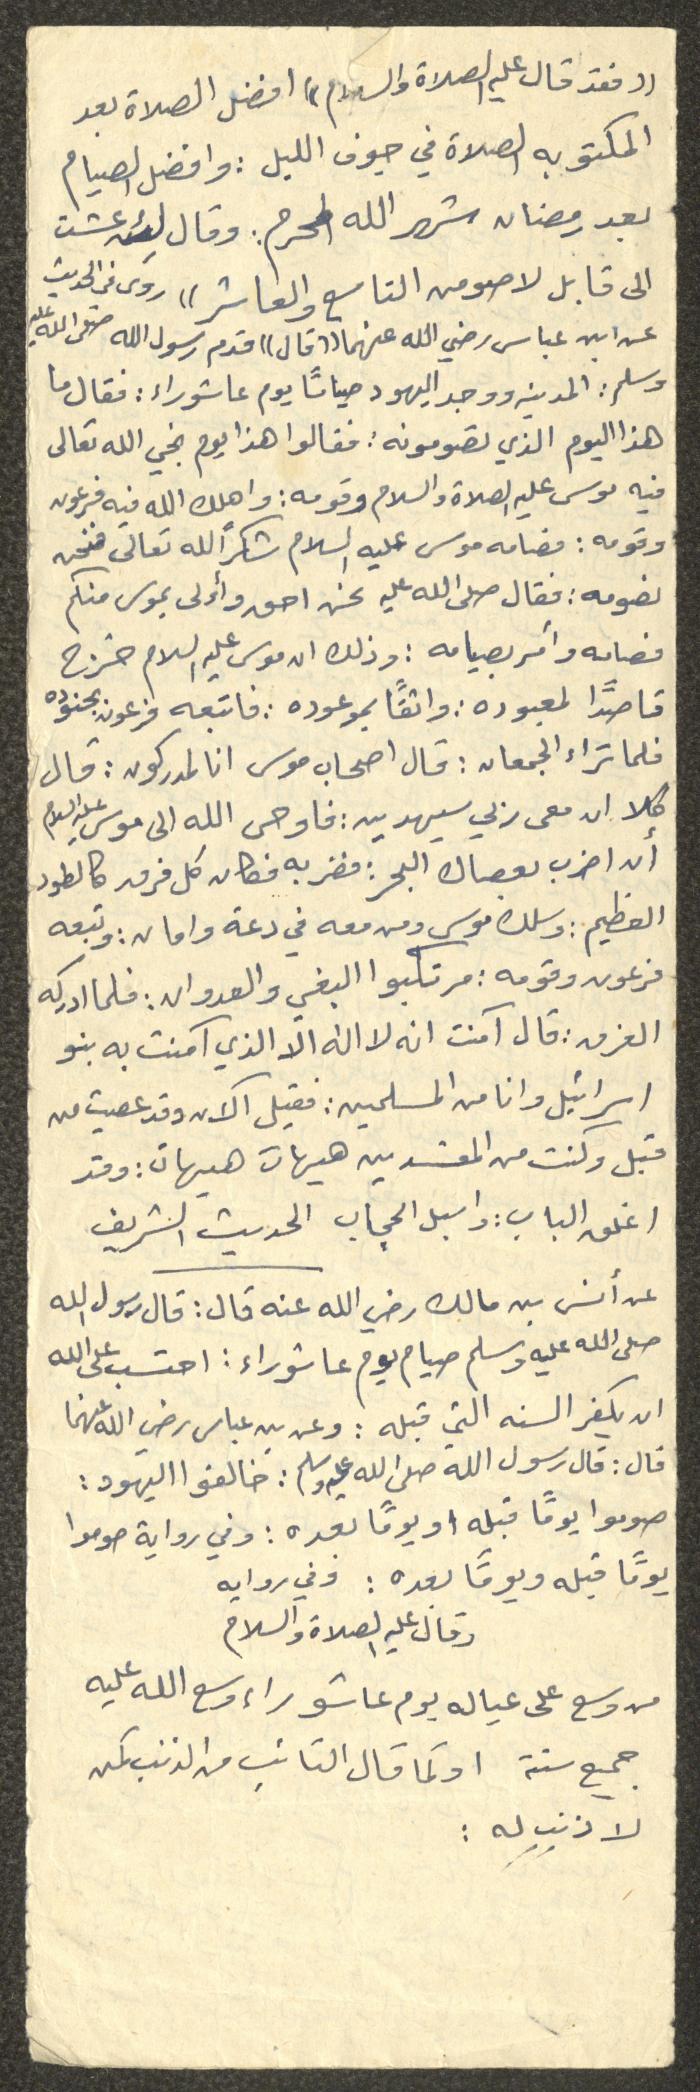 ((فقد قال عليه الصلاة والسلام)) افضل الصلاة بعد
المكتوبه الصلاة في جوف الليل : وافضل الصيام
بعد رمضان شهر الله المحرم : وقال لئن عشت
الى قابل لاصومن التاسع والعاشر )) روى في الحديث
عن ابن عباس رضي الله عنهما ((قال)) قدم رسول الله صلى الله عليه
وسلم : المدينه ووجد اليهود صيامًا يوم عاشوراء : فقال ما
هذا اليوم الذي تصومونه : فقالوا هذا يوم نجي الله تعالى
فيه موسى عليه الصلاة والسلام وقومه : واهلك الله فيه فرعون
وقومه : فصامه موسى عليه السلام شكرًا لله تعالى فنحن
نصومه : فقال صلى الله عليه نحن احق وأولى بموسى منكم
فصامه وأمر بصيامه : وذلك ان موسى عليه السلام خرج
قاصدًا لمعبوده : واثقًا بموعوده : فاتبعه فرعون بجنوده
فلما تراء الجمعان : قال اصحاب موسى انا لمدركون : قال
كلا ان معي ربي سيهدين : فاوحى الله الى موسى عليه السلام
أن اضرب بعصاك البحر : فضربه فكان كل فرق كالطود
العظيم : وسلك موسى ومن معه في دعة وامان : وتبعه
فرعون وقومه : مرتكبوا البغي والعدوان : فلما ادركه
الغرق : قال آمنت انه لا اله الّا الذي آمنت به بنو
اسرائيل وانا من المسلمين : فقيل آلان وقد عصيت من
قبل وكنت من المفسدين هيهات هيهات : وقد
اغلق الباب : واسبل الحجاب الحديث الشريف
عن أنس بن مالك رضي الله عنه قال : قال رسول الله
صلى الله عليه وسلم صيام يوم عاشوراء : احتسب على الله
ان يكفر السنه التي قبله : وعن بن عباس رضي الله عنهما
قال : قال رسول الله صلى الله عليه وسلم : خالفوا اليهود :
صوموا يومًا قبله او يومًا بعده : وفي رواية صوموا
يومًا قبله ويومًا بعده : وفي روايه
وقال عليه الصلاة والسلام
من وسع على عياله يوم عاشوراء وسع الله عليه
جميع سنة اوكما قال التائب من الذنب كمن
لا ذنب له :